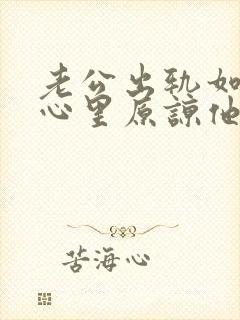 老公出轨如
心里原谅他
苦海心